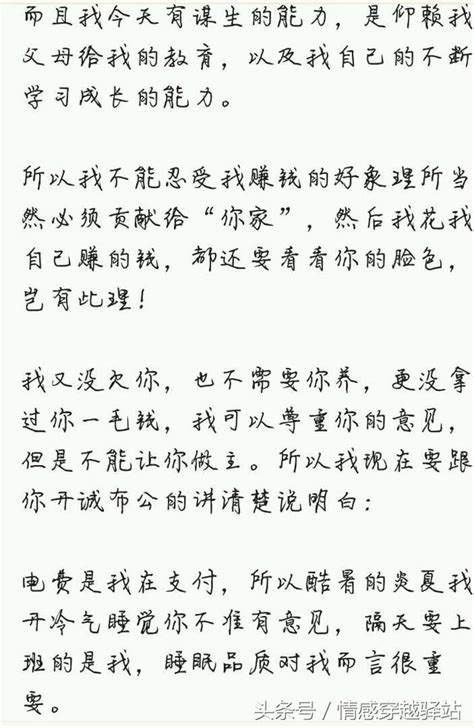 而且我今天有谋生的能力，是仰赖我
父母给我的教育，以及我自己的不断
学习成长的能力。
所以我不能忍受我赚钱的好象理所当
然必须贡献给“你家”，然后我花我
自己赚的钱，都还要看看你的脸色，
岂有此理！
我又没欠你，也不需要你养，更没拿
过你一毛钱，我可以尊重你的意见，
但是不能让你做主。所以我现在要跟
你开诚布公的讲清楚说明白：
电费是我在支付，所以酷暑的炎夏我
开冷气睡觉你不准有意见，隔天要上
班的是我，睡眠品质对我而言很重
要。
头条号/情感穿越驿站